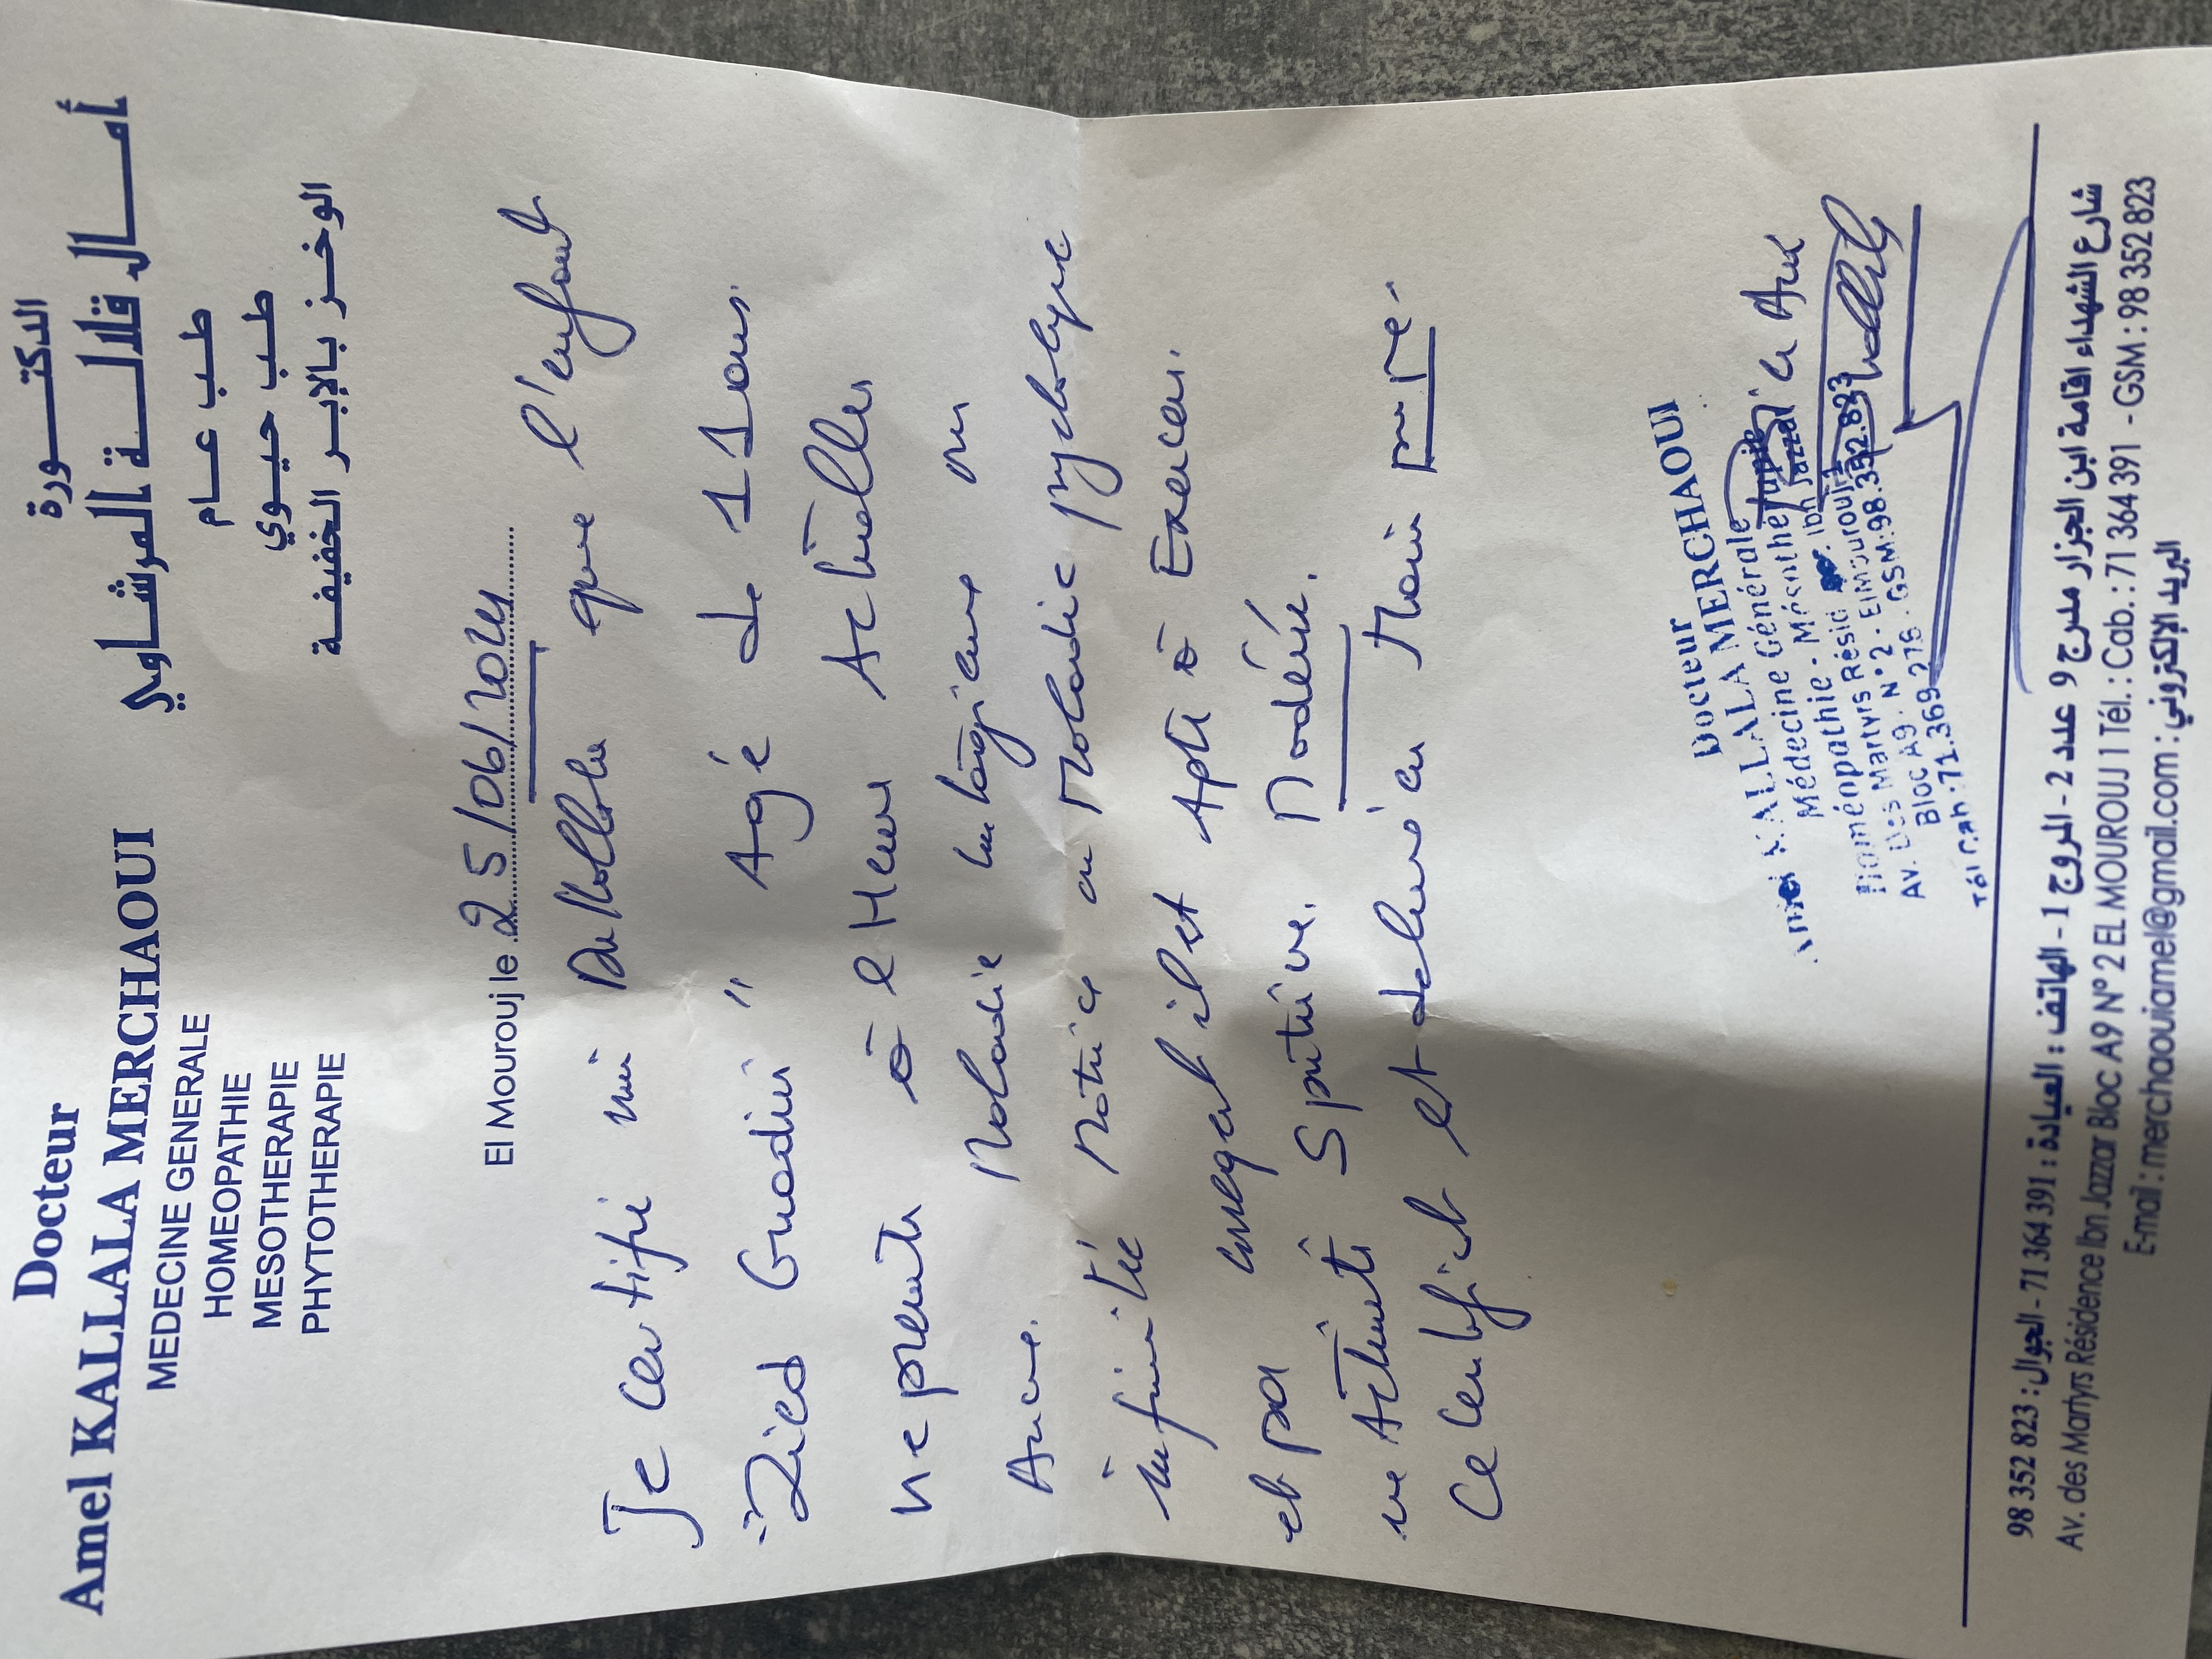 Docteur
Amel KALLALA MERCHAOUI
MEDECINE GENERALE
HOMEOPATHIE
MESOTHERAPIE
PHYTOTHERAPIE
الدكتـــورة
أمـــال قلالـــة المرشـــاوي
طـب عـــام
طـب حيـوي
الوخـز بالإبـر الخفيفـة
El Mourouj le 25/06/2024
Je certifie que l'enfant
"Zied Guedini" Agé de 11 ans.
ne présente à l'Heure Actuelle
Aucune Maladie contagieuse ou
infirmitée Motrice ou Maladie psychologique
et par conséquent il est Apte à Exercer
une Activité Sportive Modérée.
Ce certificat est délivré en Main propre.
Docteur
Amel KALLALA MERCHAOUI
Médecine Générale
Homéopathie - Mésothérapie
Av. des Martyrs Résid. Ibn Jazzar
Bloc A9. N°2 - El Mourouj 1
Tél Cab:71.369.278 - GSM:98.352.823
شارع الشهداء اقامة ابن الجزار مدرج 9 عدد 2 - المروج 1 - الهاتف : العيادة : 391 364 71 - الجوال : 823 352 98
Av. des Martyrs Résidence Ibn Jazzar Bloc A9 N° 2 EL MOUROUJ 1 Tél. : Cab. : 71 364 391 - GSM : 98 352 823
E-mail : merchaouiamel@gmail.com : البريد الإلكتروني